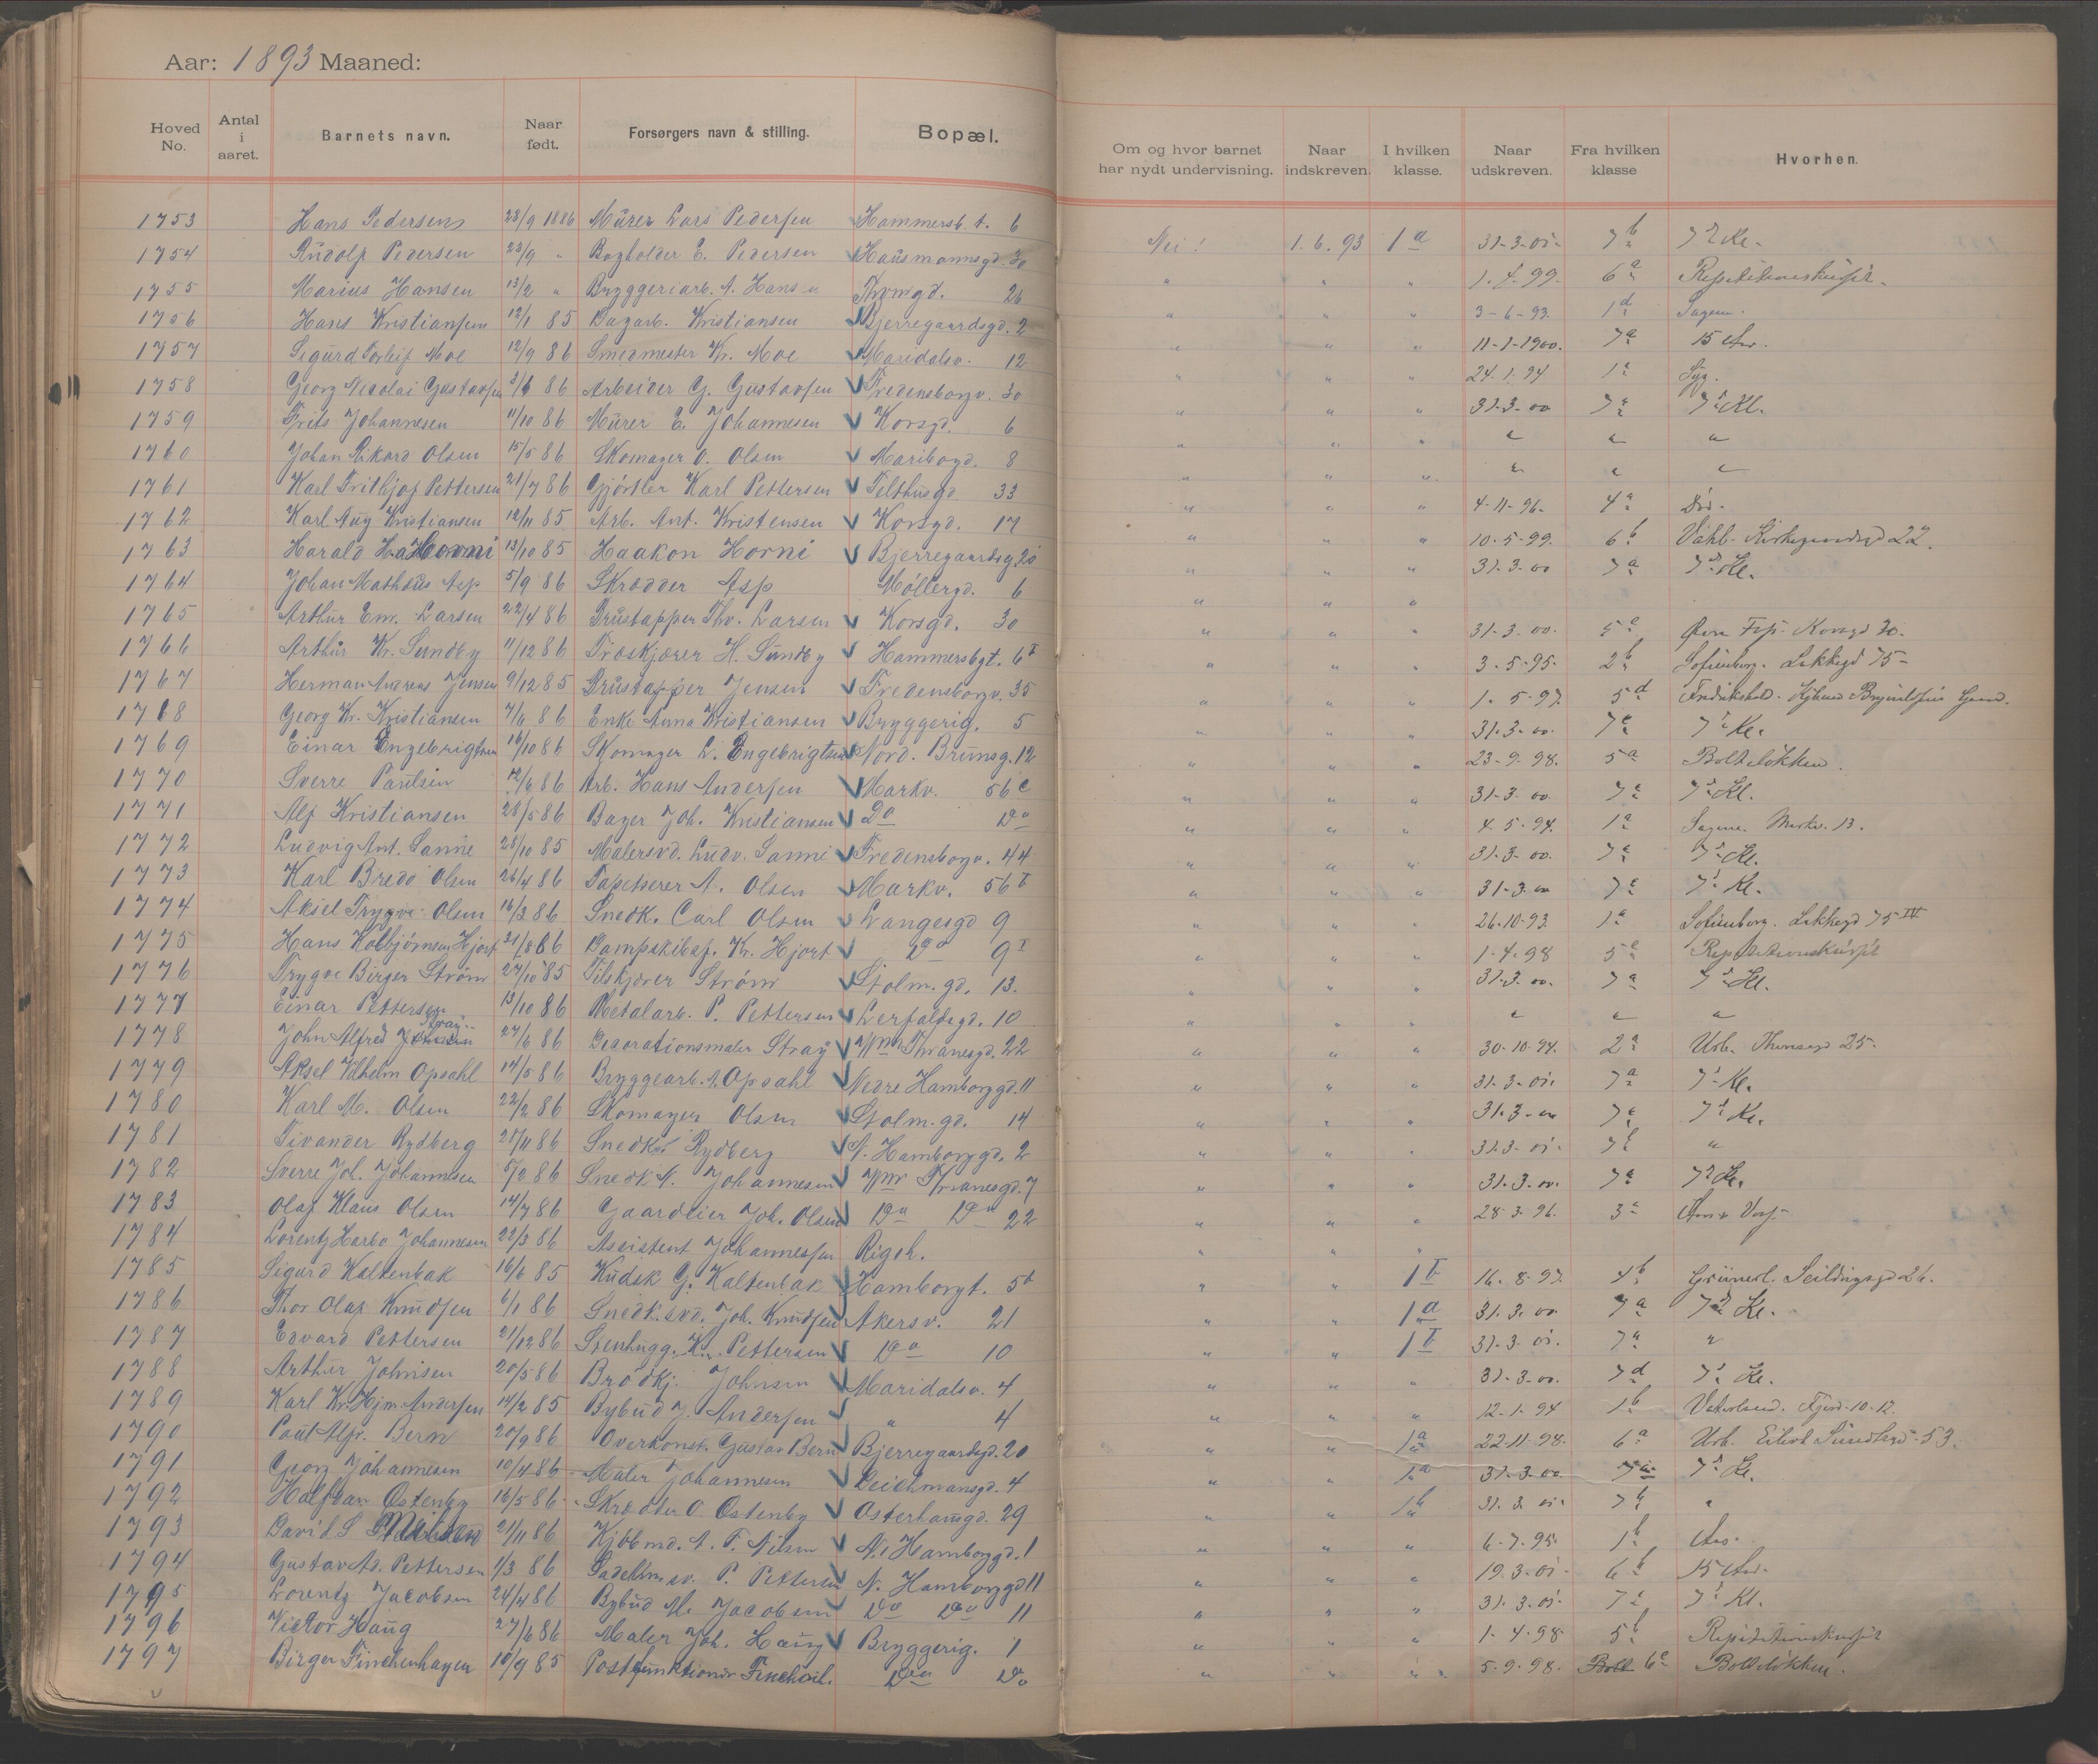 Aar: 1893 Maaned:
Hoved No. Antal i aaret. Barnets navn. Naar født. Forsørgers navn & stilling. Bopæl. Om og hvor barnet har nydt undervisning. Naar indskreven. I hvilken klasse. Naar udskreven. Fra hvilken klasse Hvorhen.
1753 Hans Pedersen 23/9 1886 Mürer Lars Pedersen Hammersb. t. 6 Nei! 1.6.93 1a 31-3-01- 7b 7d Kl.
1754 Rudolf Pedersen 23/9 " Bogholder E. Pedersen Hausmannsgd. 30 " " " 1.4.99. 6a
1755 Marius Hansen 13/2 " Bryggeriarb. A. Hansen Thomgd. 26 " " " 3-6-93. 1d Sagene.
1756 Hans Kristiansen 12/1 85 Kristiansen Bjerregaardsgd. 2 " " " 11-1-1900. 7a 15 Aar.
1757 Sigurd Torleif Moe 12/9 86 Smedmester Kr. Moe Maridalsv. 12 " " " 24.1.94 1a Syg.
1758 Georg Nicolai Gustavsen 86 Arbeider G. Gustavsen Fredensborgv. 30 " " " 31-3-00 7a 7d Kl.
1759 Frits Johannesen 11/10 86 Mürer E. Johannesen Korsgd. 6 " " " " " "
1760 Johan Rikard Olsen 15/5 86 Skomager O. Olsen Maribogd. 8 " " " " " "
1761 Karl Frithjof Pettersen 21/7 86 Gjørtler Karl Pettersen Telthusgd 33 " " " 4-11-96- 4a Død.
1762 Karl Aug Kristiansen 12/11 85 Arb. Ant. Kristensen Korsgd. 17 " " " 10-5-99. 6b Vahl. 22.
1763 Harald Horni 13/10 85 Haakon Horni Bjerregaardsg 20 " " " 31.3.00 7a 7d Kl.
1764 Johan Mathæus Asp 5/9 86 Skrædder Asp Møllergd. 6 " " "
1765 Arthur Em. Larsen 22/4 86 Thv. Larsen Korsgd. 30 " " " 31-3-00. Korsgd 30.
1766 Arthur Kr. Sundby 11/12 86 Træskjærer H. Sundby Hammersbgt. 6I " " " 3-5-95- 2b Sofienberg. Lakkegd 75-
1767 Herman Andreas Jensen 9/12 85 Jensen Fredensborgv. 35 " " " 1.5-97. 5d Fredrikshald.
1768 Georg Kr. Kristiansen 86 Enke Anna Kristiansen Bryggerig. 5 " " " 31.3-00. 7c 7d Kl.
1769 Einar Engebrigtsen 16/10 86 Skomager L. Engebrigtsen Nord. Brunsg. 12 " " " 23-9-98. 5a Bolteløkken.
1770 Sverre Paulsen 12/6 86 Arb. Hans Andersen Markv. 56c " " " 31-3-00. 7c 7d Kl.
1771 Alf Kristiansen 28/5 86 Bager Joh. Kristiansen Do Do " " " 4.5-94. 1a Sagene. Markv. 13.
1772 Ludvig Ant. Sanne 28/10 85 Malersvd. Ludv. Sanne Fredensborgv. 44 " " " 31.3-00. 7c 7d Kl.
1773 Karl Bredo Olsen 26/4 86 Tapetserer A. Olsen Markv. 56I " " " 31-3-00 7c 7d Kl.
1774 Aksel Trygve Olsen 16/3 86 Snedk. Carl Olsen Langesgd 9 " " " 26-10-93. 1a Sofienberg. Lakkegd 75 IV
1775 Hans Kolbjørnsen Hjort 21/8 86 Dampskibsf. Kr. Hjort Do 9I " " " 1.4.98
1776 Trygve Birger Strøm 27/10 85 Filskjærer Strøm Stolm.gd. 13. " " " 31.3.00. 7a 7d Kl.
1777 Einar Pettersen 13/10 86 Metalarb. P. Pettersen Lerfaldsgd. 10 " " " " " "
1778 John Alfred Stray 27/6 86 Decorationsmaler Stray Wm Thranesgd. 22 " " " 30-10-94. 2a Urb. 25-
1779 Aksel Vilhelm Opsahl 14/5 86 Bryggearb. A. Opsahl Nedre Hamborggd. 11 " " " 31-3-01. 7a 7d Kl.
1780 Karl M. Olsen 22/2 86 Skomager Olsen Stolm.gd. 14 " " " 31.3-00 7c 7d Kl.
1781 Tivander Rydberg 28/11 86 Snedker Rydberg N. Hamborggd. 2 " " " 31.3-01- 7b "
1782 Sverre Joh. Johannesen 5/2 86 Snedk. A. Johannesen Wm Thranesgd. 7 " " " 31.3-00. 7a 7d Kl.
1783 Olaf Klaus Olsen 14/7 86 Gaardeier Joh. Olsen Do Do 22 " " " 28-3-96. 3a
1784 Lorentz Harbo Johannesen 22/3 86 Assistent Johannessen Rigsh. " " "
1785 Sigurd Kaltenbak 16/6 85 Kudsk G. Kaltenbak Hamborgt. 5b " " 1b 16.8-97. 4b Grünerl. Seildugsgd 26.
1786 Thor Olaf Knudsen 6/1 86 Snedk.svd. Joh. Knudsen Akersv. 21 " " 1a 31.3.00 7a 7d Kl.
1787 Edvard Pettersen 21/12 86 Stenhugg. K. Pettersen Do 10 " " 1b 31-3-01. 7a "
1788 Arthur Johnsen 20/5 86 Brødkj. Johnsen Maridalsv. 4 " " " 31-3-00. 7d 7d Kl.
1789 Karl Kr. Hjm. Andersen 14/2 85 Bybud J. Andersen " 4 " " " 12-1-94 1b Vaterland. 10-12.
1790 Paul Alfr. Bern 20/9 86 Overkonst. Gustav Bern Bjerregaardsgd. 20 " " 1a 22-11-98. 6a Urb. Eilert Sundtsgd-53.
1791 Georg Johannesen 10/4 86 Maler Johannesen Deichmansgd. 4 " " 1a 31-3-00 7a 7d Kl.
1792 Halfdan Østenby 16/5 86 Skrædder O. Østenby Osterhausgd. 29 " " 1b 31.3.01. 7b "
1793 David S 21/11 86 A. F. Nilsen N. Hamborggd. 1 " " " 6-7-95. 1b
1794 Gustav Ad. Pettersen 1/3 86 P. Pettersen N. Hamborggd 11 " " " 19.3-01- 6b 15 Aar.
1795 Lorentz Jacobsen 24/4 86 Bybud M. Jacobsen Do Do 11 " " " 31.3.01. 7d Kl.
1796 Victor Haug 27/6 86 Maler Joh. Haug Bryggerig. 1 " " " 1-4-98- 5b
1797 Birger Finckenhagen 10/9 85 Postfunktionær Do Do " " " 5-9-98. 6c Bolteløkken.